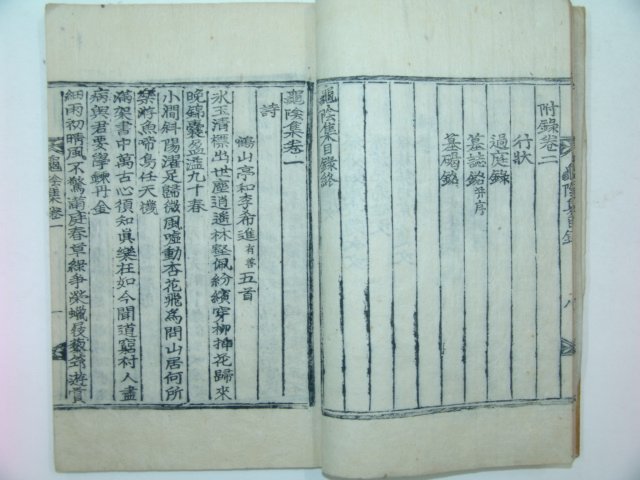 龜陰集目錄
八
附錄卷二
行狀
過庭錄
墓誌銘并序
墓碣銘
龜陰集目錄終
龜陰集卷一
詩
山亭和李希進有善五首
氷玉清標出世塵逍遙林壑佩紛繽穿柳揷花歸來
晩錦囊盈溢九十春
小澗斜陽濯足歸微風噓動杏花飛爲問山居何所
樂游魚啼鳥任天機
滿架書中萬古心須知眞樂在如今聞道窮村人盡
病與君要學鍊丹金
細雨初晴風不驚滿庭春草綠爭榮蠟屐藜笻遊賞
龜陰集卷一
一